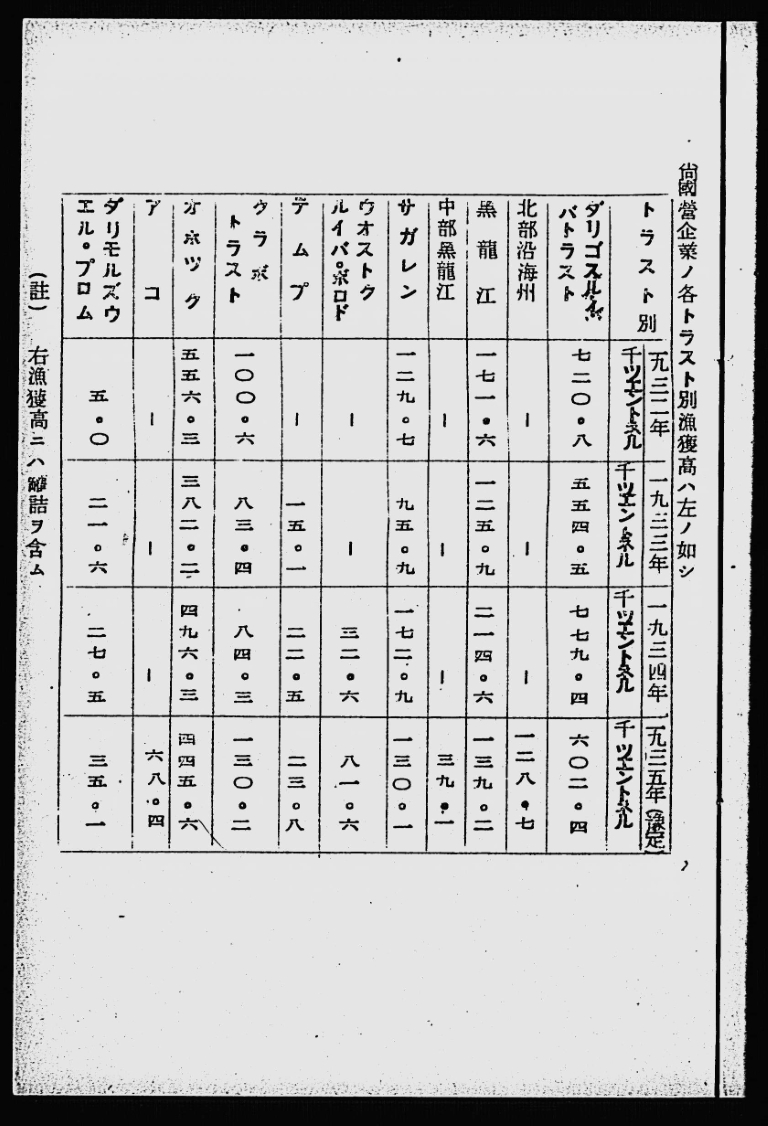 尙國營企業ノ各トラスト別漁獲高ハ左ノ如シ
トラスト別
一九三二年
千ツエントネル
一九三三年
千ツエントネル
一九三四年
千ツエントネル
一九三五年(豫定)
千ツエントネル
ダリゴスルイバトラスト
七二〇・八
五五四・五
七七九・四
六〇二・四
北部沿海州
―
―
―
一二八・七
黑龍江
一七一・六
一二五・九
二一四・六
一三九・二
中部黑龍江
―
―
―
三九・一
サガレン
一二九・七
九五・九
一七二・九
一三〇・一
ウオストク
ルイバ・ホロド
―
―
三二・六
八一・六
テムプ
―
一五・一
二二・五
二三・八
クラボ
トラスト
一〇〇・六
八三・四
八四・三
一三〇・二
オホツク
五五六・三
三八二・二
四九六・三
四四五・六
アコ
―
―
―
六八・四
ダリモルズウ
エル・プロム
五・〇
二一・六
二七・五
三五・一
(註) 右漁獲高ニハ罐詰ヲ含ム